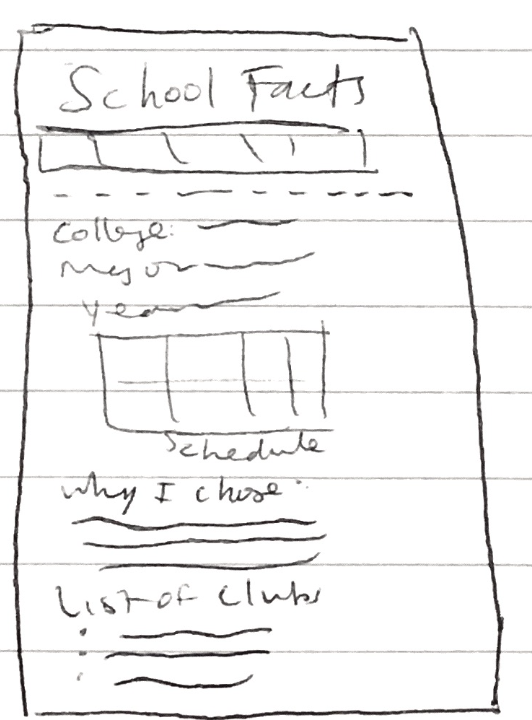 School Facts
College:
Major
Year
Schedule
Why I chose:
List of Clubs